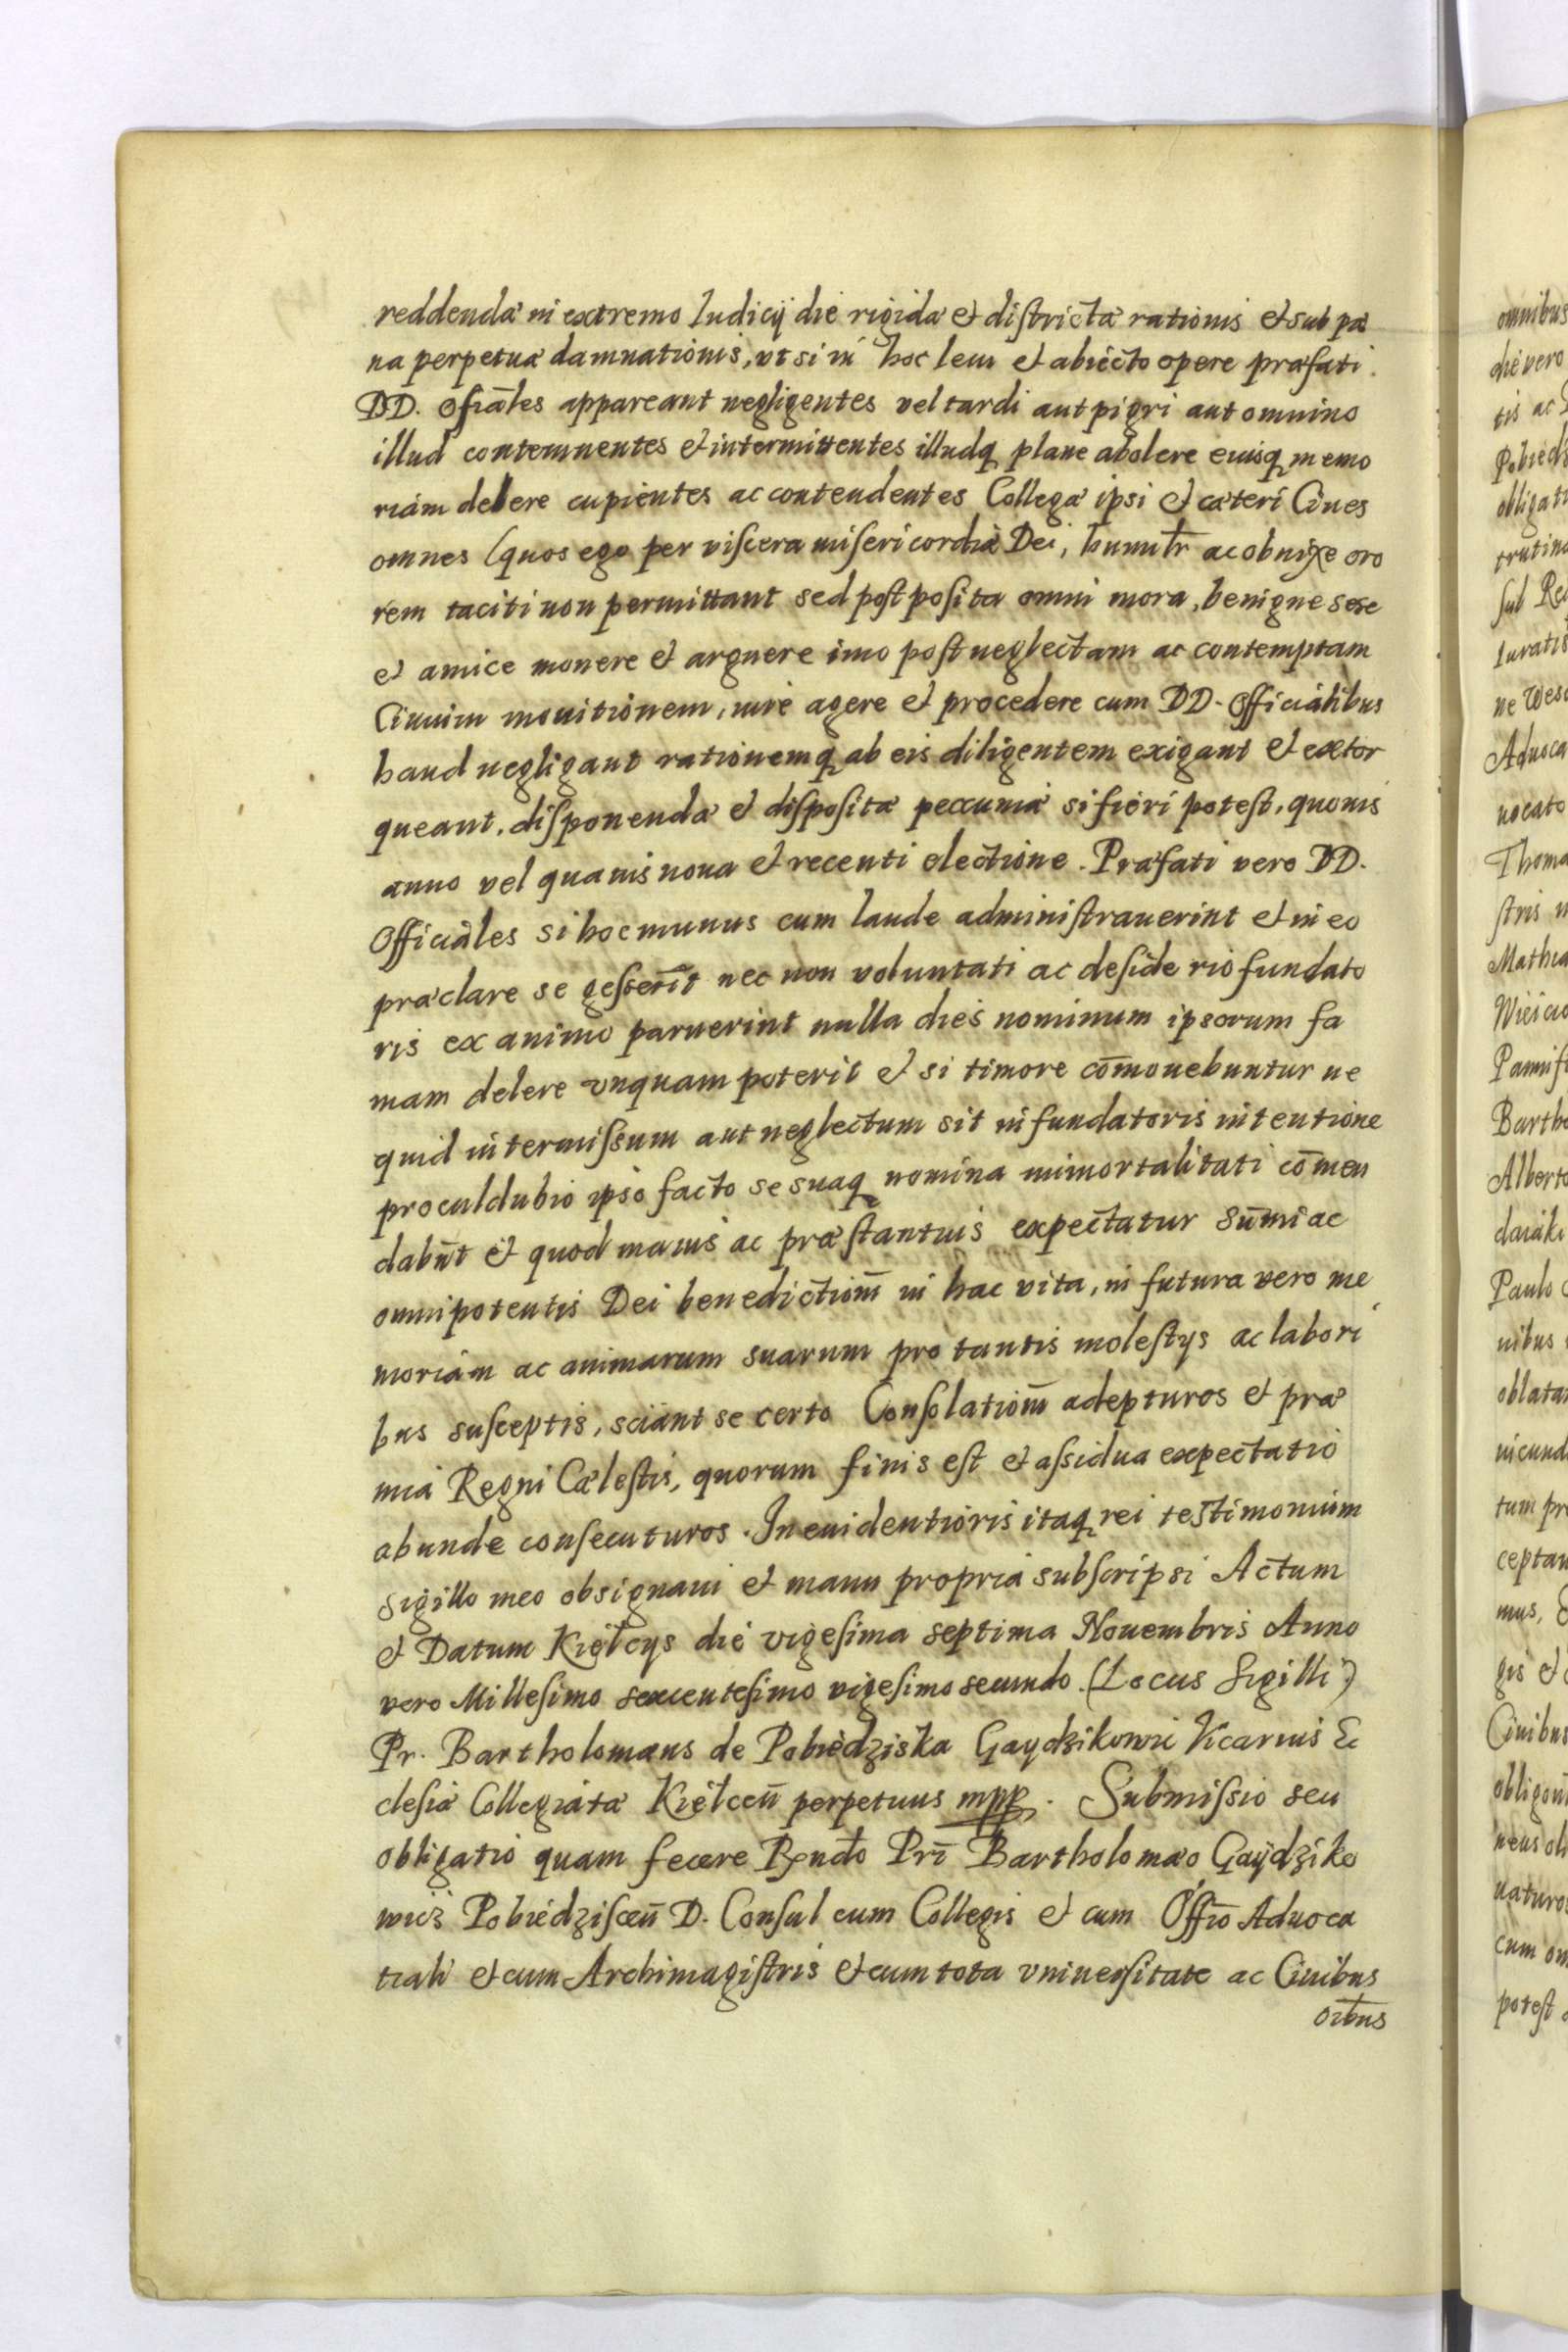 reddendæ in extremo Iudicij die rigidæ et districtæ rationis et sub pæ
na perpetuæ damnationis, vt si in hoc leui et abiecto opere præfati
DD. ofiāles appareant negligentes vel tardi aut pigri aut omnino
illud contemnentes et intermittentes illudq plane abolere eiusq memo
riam delere cupientes ac contendentes Collegæ ipsi et cæteri Ciues
omnes (quos ego per viscera misericordiæ Dei, humilr ac obnixe oro
rem taciti non permittant sed postposita omni mora, benigne sese
et amice monere et arguere imo post neglectam ac contemptam
Ciuium monitionem, iure agere et procedere cum DD. Officialibus
haud negligant rationemq ab eis diligentem exigant et extor
queant, disponendæ et dispositæ pecuniæ si fieri potest, quouis
anno vel quauis noua et recenti electione. Præfati vero DD.
Officiales si hoc munus cum laude administrauerint et in eo
præclare se gesserīt nec non voluntati ac desiderio fundato
ris ex animo paruerint nulla dies nominum ipsorum fa
mam delere vnquam poterit et si timore cōmouebuntur ne
quid intermissum aut neglectum sit in fundatoris intentione
proculdubio ipso facto se suaq nomina immortalitati cōmen
dabūt et quod maius ac præstantius expectatur sūmi ac
omnipotentis Dei benedictiom̄ in hac vita, in futura vero me
moriam ac animarum suarum pro tantis molestijs ac labori
bus susceptis, sciant se certo Consolatiom̄ adepturos et præ
mia Regni Cælestis, quorum finis est et assidua expectatio
abunde consecuturos. In euidentioris itaq rei testimonium
sigillo meo obsignaui et manu propria subscripsi Actum
et Datum Kielcys die vigesima septima Nouembris Anno
vero Millesimo sexcentesimo vigesimo secundo. (Locus Sigilli)
Pr. Bartholomæus de Pobiedziska Gaydzikowic Vicarius Ec
clesiæ Collegiatæ Kielceñ perpetuus mpp. Submissio seu
obligatio quam fecere Rndo Pri Bartholomæo Gaÿdziko
wicz Pobiedzisceñ D. Consul cum Collegis et cum Offīo Aduoca
tiali et cum Archimagistris et cum tota vniuersitate ac Ciuibus
oībus
omnibus
die vero
tis ac
Pobieds
obligati
Iuratis
Aduoca
uocato
Thoma
stris
Mathia
Bartho
Alberto
Paulo
nibus
oblata
tum pr
ceptau
mus,
gis et
Ciuibus
cum om
potest